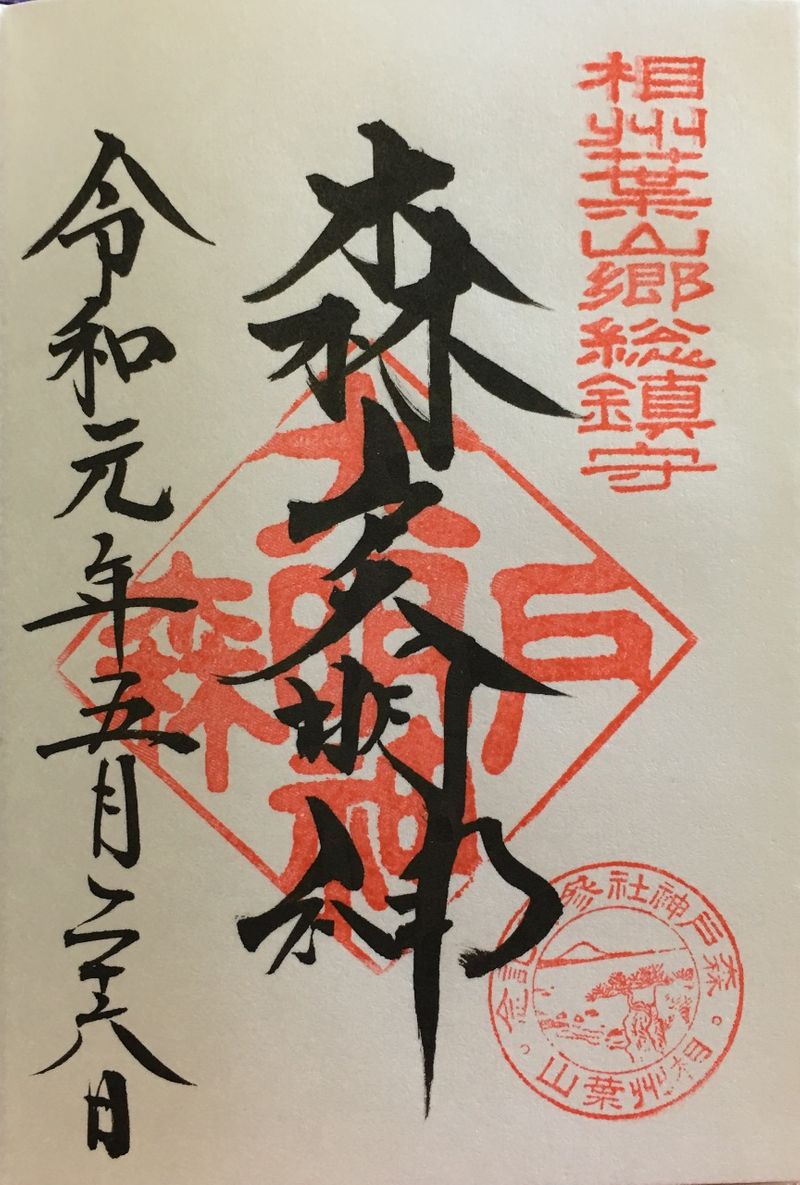 相州葉山郷総鎮守
森戸大明神
森戸大明神
令和元年五月二十六日
森戸神社参 記念
相州葉山